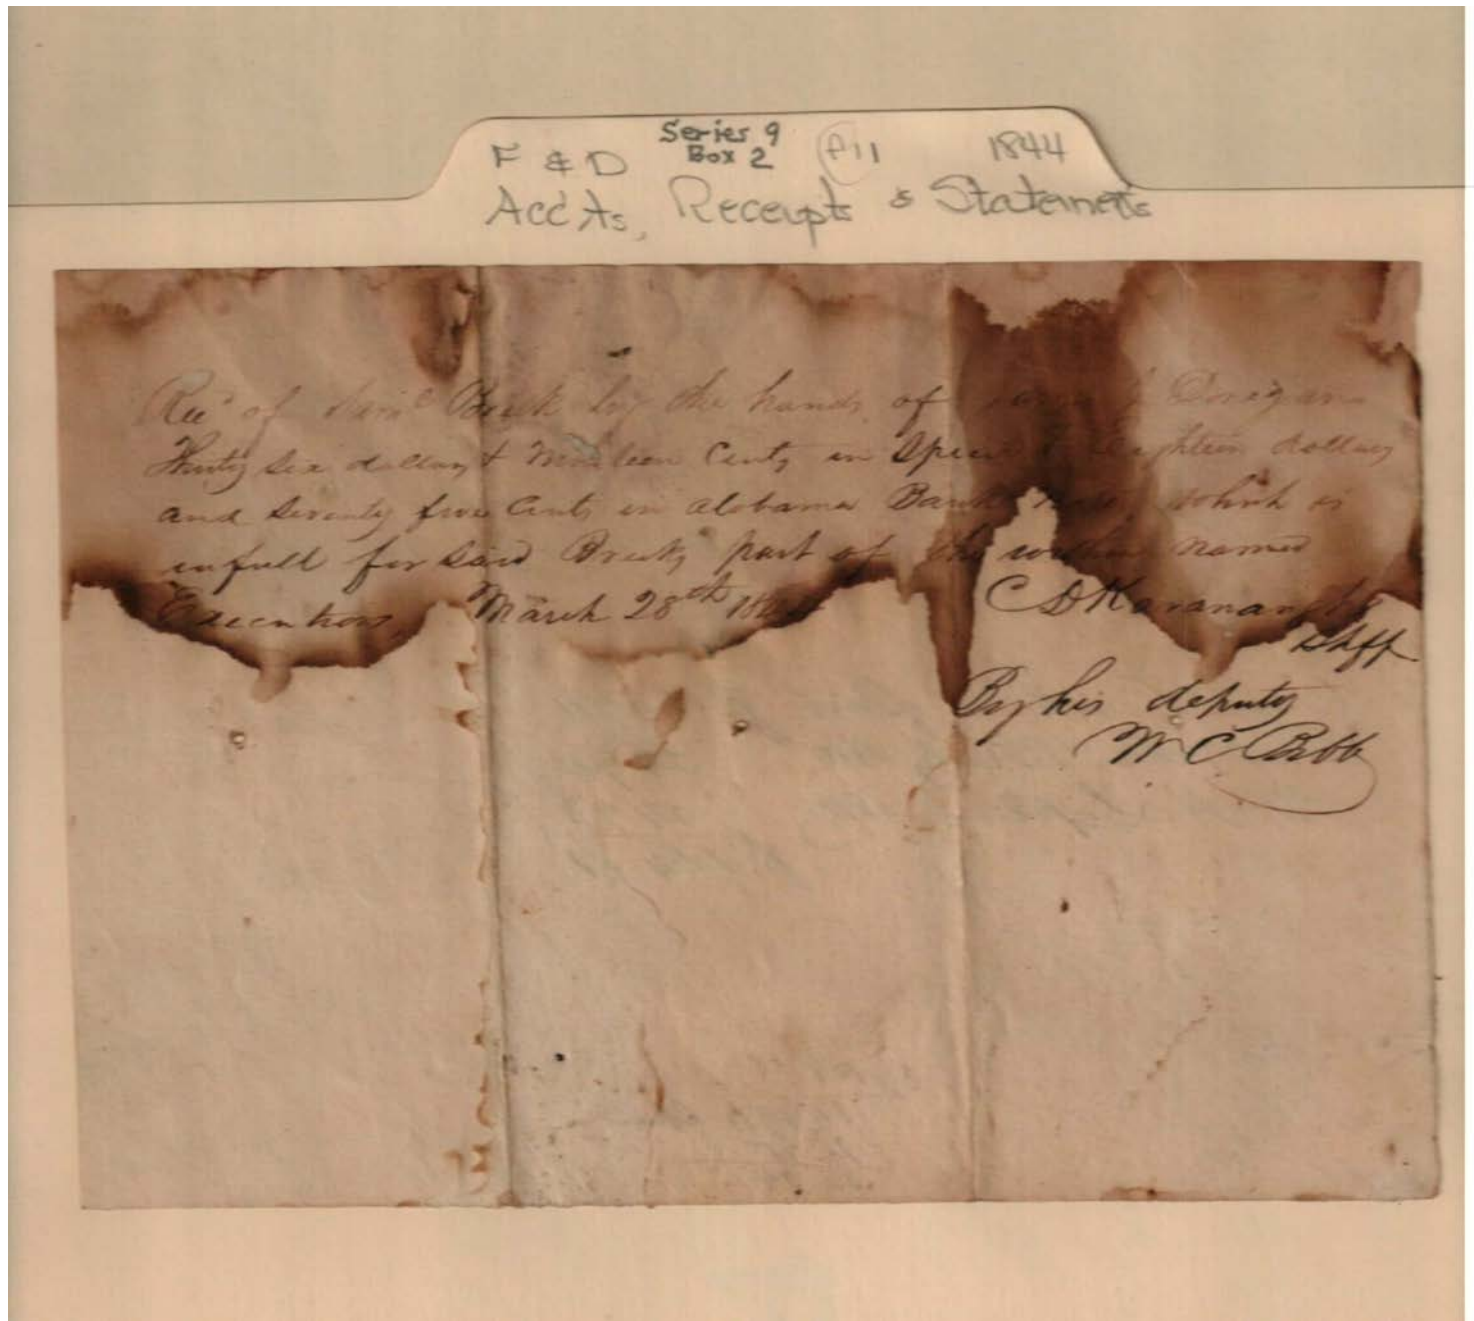 Series 9
Box 2
F & D P11 1844
Acc'ts, Receipts & Statements
Rec'd of Sam'l Breck by the hands of Donegan
Thirty six dollars & Nineteen Cents in Specie & Eighteen dollars
and Seventy five Cents in Alabama Bank which is
in full for said Brecks part of the within named
Executions, March 28th 1844 C D Kavanaugh
Shff
By his deputy
W C Bibb